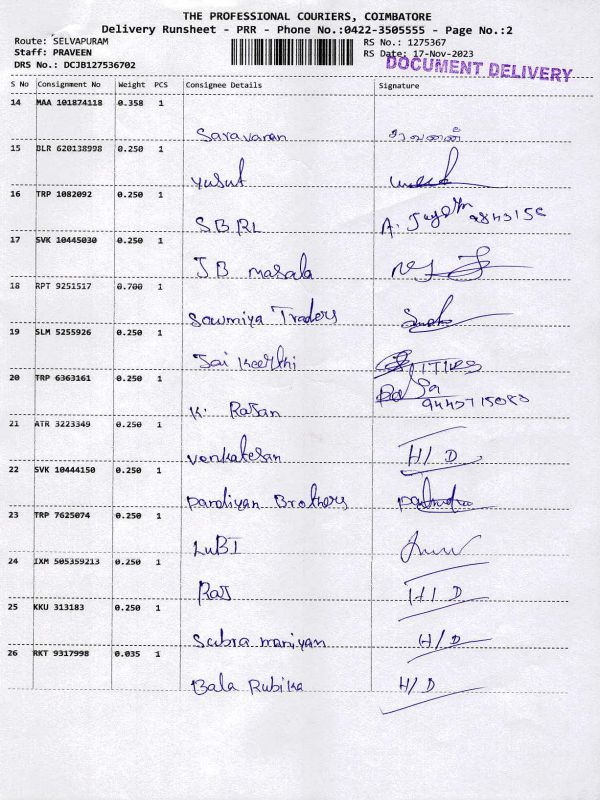 THE PROFESSIONAL COURIERS, COIMBATORE
Delivery Runsheet - PRR - Phone No.:0422-3505555 - Page No.:2
Route: SELVAPURAM RS No.: 1275367
Staff: PRAVEEN RS Date: 17-Nov-2023
DRS No.: DCJB127536702 DOCUMENT DELIVERY
S No Consignment No Weight PCS Consignee Details Signature
14 MAA 101874118 0.358 1
Saravanan சரவணன்
15 BLR 620138998 0.250 1
Yusuf
16 TRP 1082092 0.250 1
SBRL
17 SVK 10445030 0.250 1
JB masala
18 RPT 9251517 0.700 1
Sowmiya Traders
19 SLM 5255926 0.250 1
Jai Keerthi
20 TRP 6363161 0.250 1
K. Rajan
21 ATR 3223349 0.250 1
Venkatesan H/D
22 SVK 10444150 0.250 1
Pandiyan Brothers
23 TRP 7625074 0.250 1
LUBI
24 IXM 505359213 0.250 1
Raj H/D
25 KKU 313183 0.250 1
Subra maniyan H/D
26 RKT 9317998 0.035 1
Bala Rubika H/D